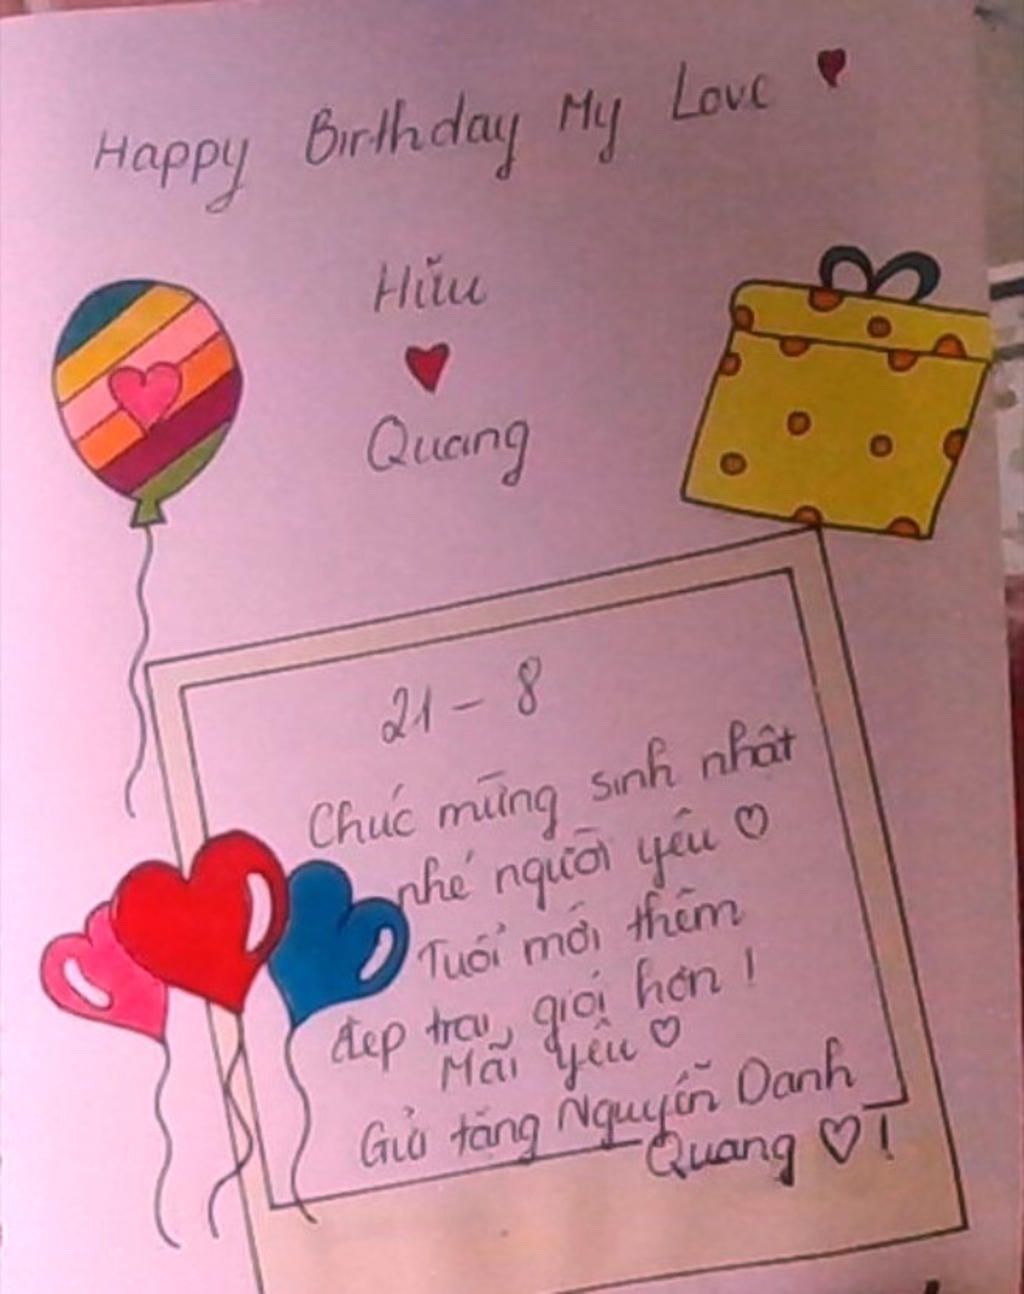 Happy Birthday My Love
Hữu
Quang
21 - 8
Chúc mừng sinh nhật
nhé người yêu ♡
Tuổi mới thêm
đẹp trai, giỏi hơn !
Mãi yêu ♡
Gửi tặng Nguyễn Danh
Quang ♡ !